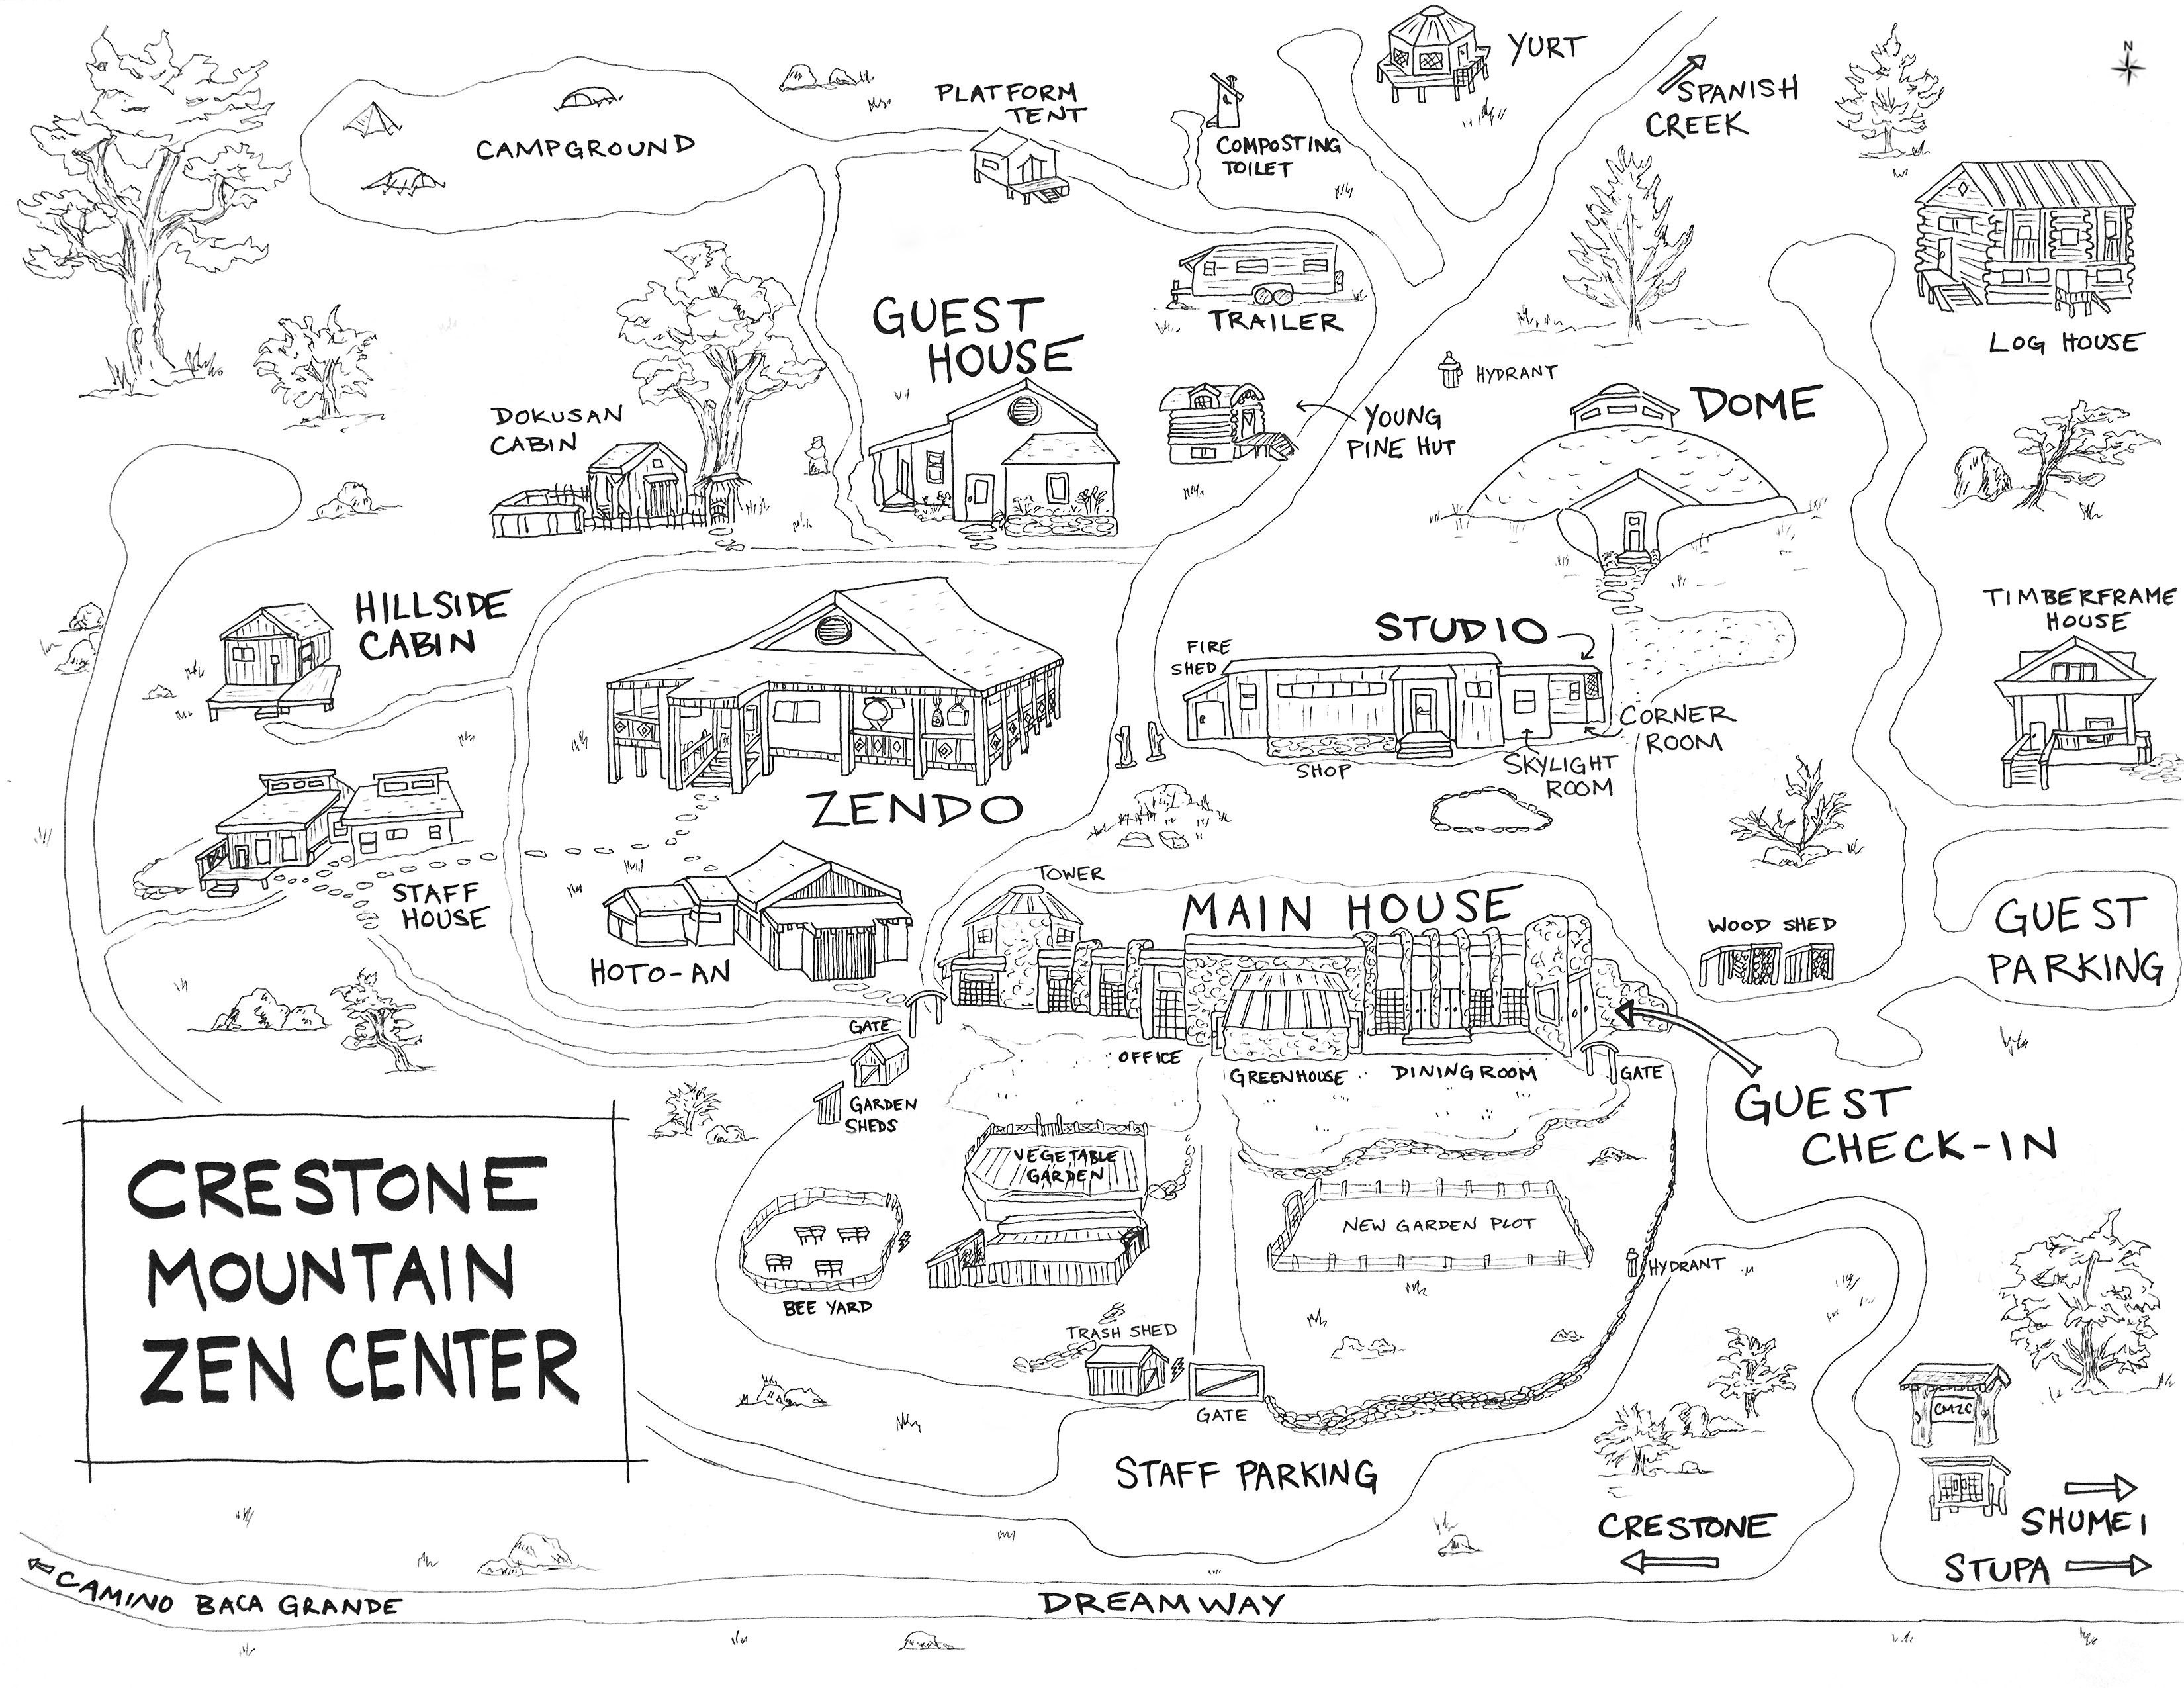 N
YURT
SPANISH
CREEK
PLATFORM
TENT
CAMPGROUND
COMPOSTING
TOILET
LOG HOUSE
TRAILER
GUEST
HOUSE
HYDRANT
DOME
YOUNG
PINE HUT
DOKUSAN
CABIN
HILLSIDE
CABIN
TIMBERFRAME
HOUSE
STUDIO
FIRE
SHED
CORNER
ROOM
SKYLIGHT
ROOM
SHOP
ZENDO
TOWER
STAFF
HOUSE
MAIN HOUSE
WOOD SHED
GUEST
PARKING
HOTO-AN
GATE
OFFICE
GREENHOUSE
DINING ROOM
GATE
GARDEN
SHEDS
GUEST
CHECK-IN
VEGETABLE
GARDEN
NEW GARDEN PLOT
HYDRANT
BEE YARD
TRASH SHED
GATE
CRESTONE
MOUNTAIN
ZEN CENTER
CMZC
STAFF PARKING
CRESTONE
SHUMEI
STUPA
CAMINO BACA GRANDE
DREAMWAY